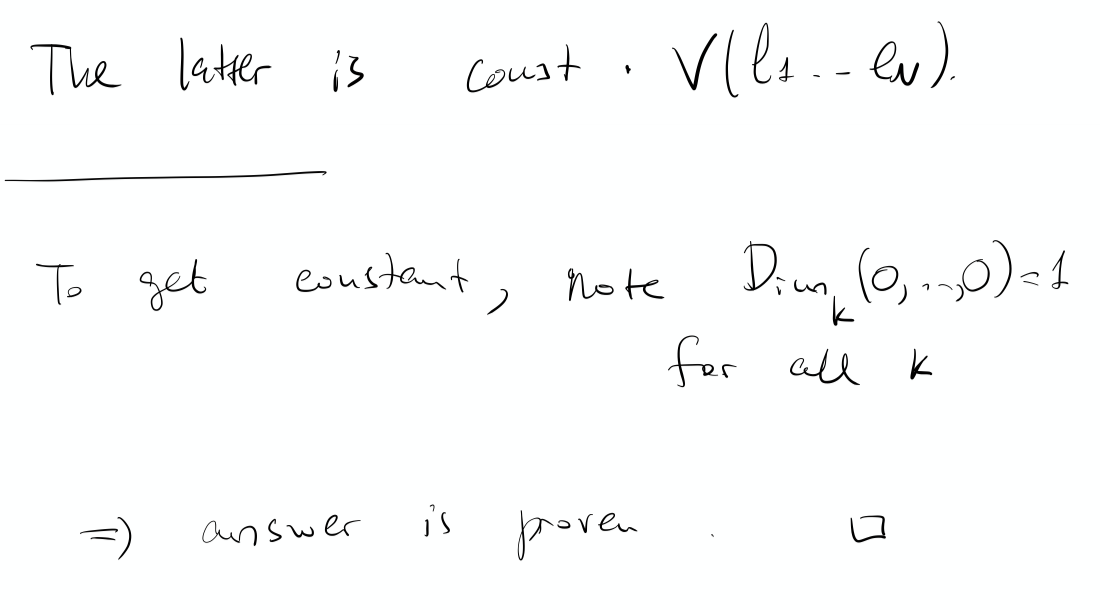 The latter is const · V(l₁...l_N).
To get constant, note Dim_k(0,...,0)=1
for all k
⇒ answer is proven. □